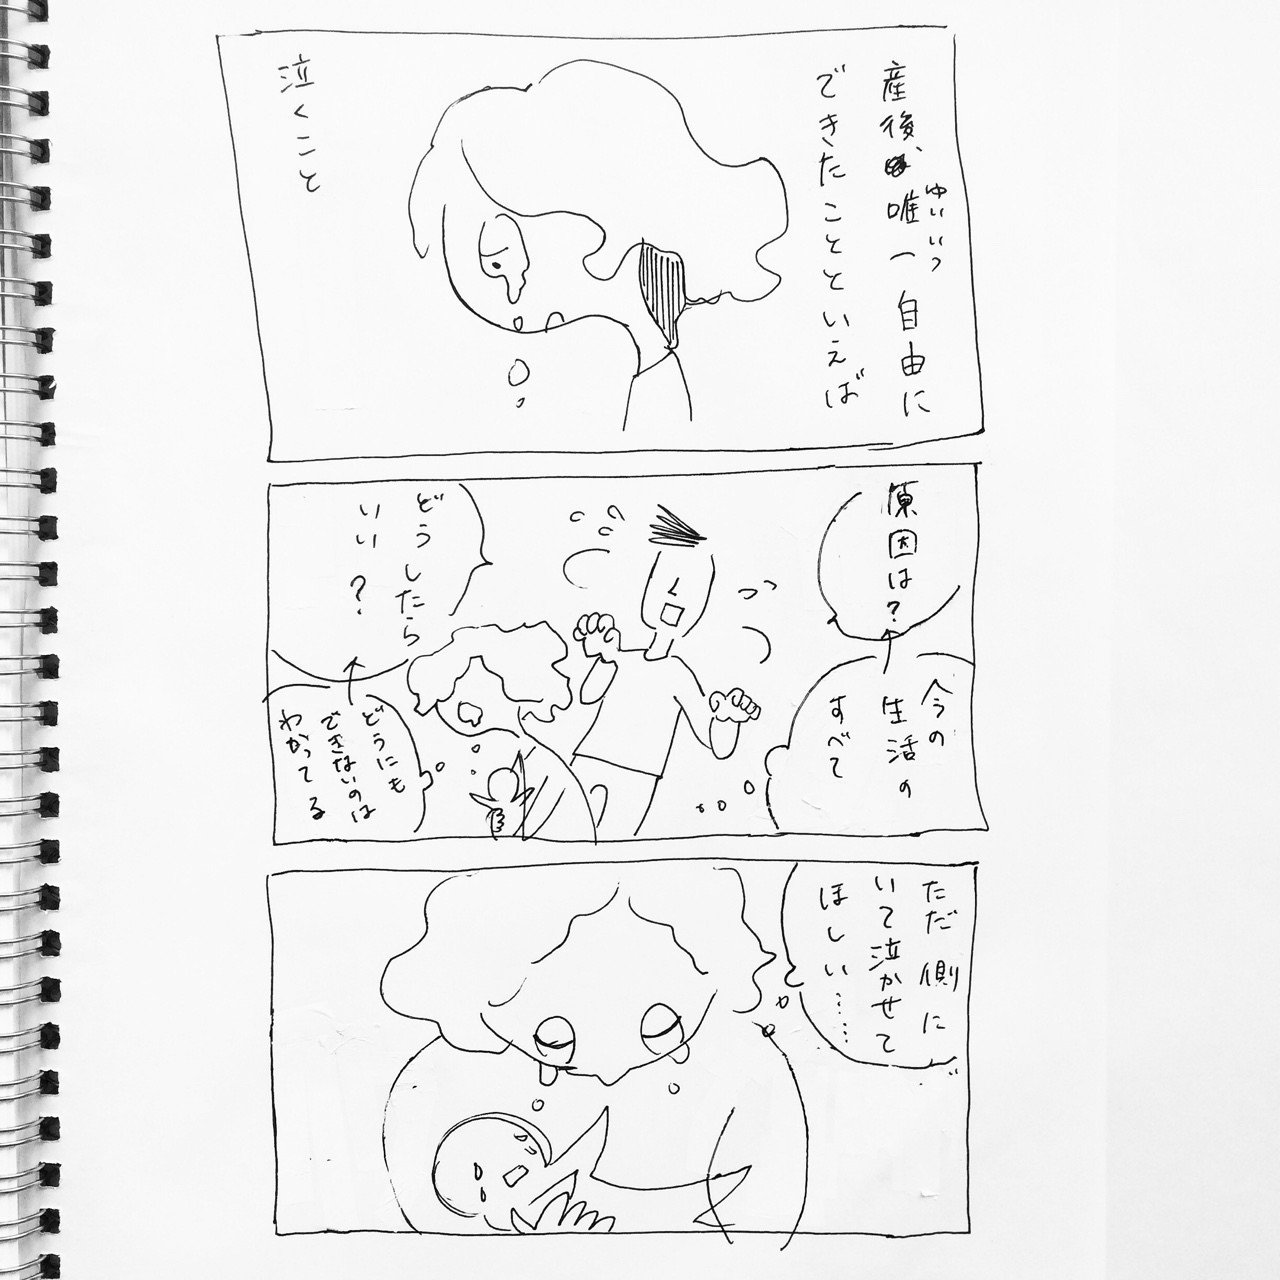 産後、唯一自由に
ゆいいつ
できたことといえば
泣くこと
原因は?
今の
生活の
すべて
どうしたら
いい?
どうにも
できないのは
わかってる
ただ側に
いて泣かせて
ほしい……